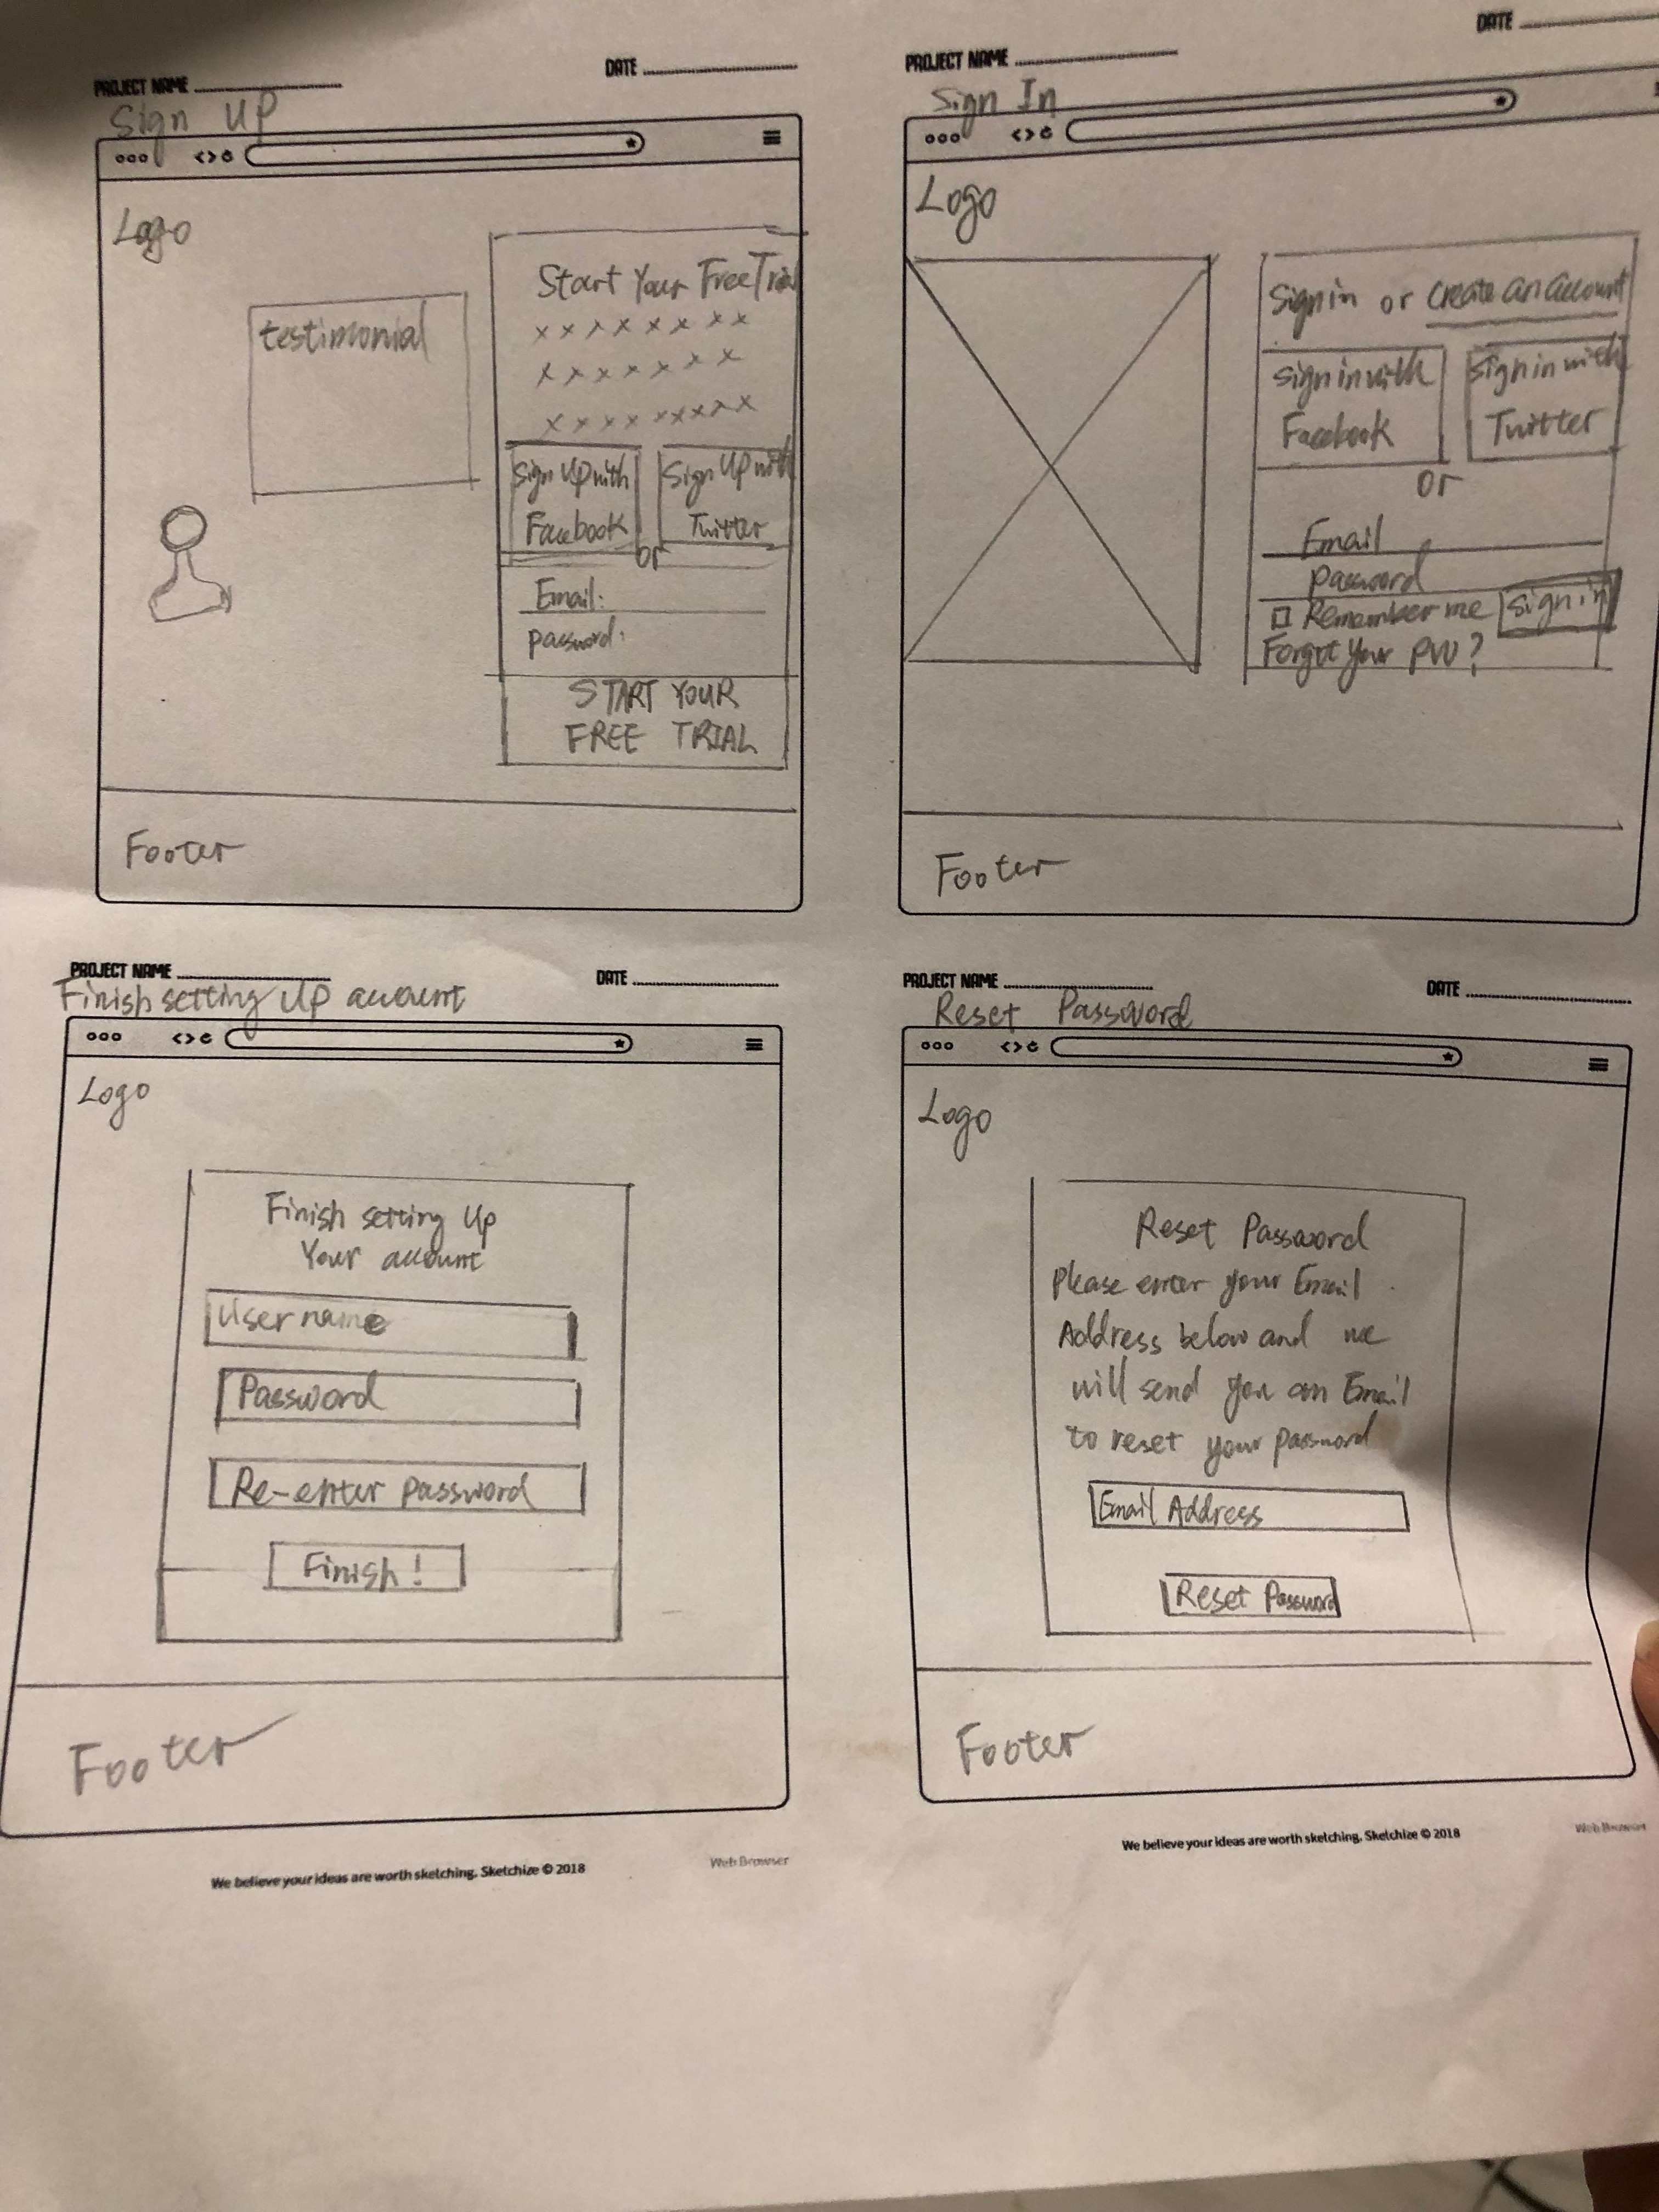 PROJECT NAME
DATE
Sign UP
Logo
testimonial
Start Your Free Trial
xxxxxxxx
xxxxxxx
xxxxxxxxx
Sign Up with
Facebook
Sign Up with
Twitter
or
Email:
password:
START YOUR
FREE TRIAL
Footer
PROJECT NAME
DATE
Sign In
Logo
Sign in or Create an account
Sign in with
Facebook
Sign in with
Twitter
or
Email
password
Remember me
Sign in
Forgot Your PW?
Footer
PROJECT NAME
DATE
Finish setting Up account
Logo
Finish setting Up
Your account
User name
Password
Re-enter password
Finish!
Footer
We believe your ideas are worth sketching. Sketchize © 2018
Web Browser
PROJECT NAME
DATE
Reset Password
Logo
Reset Password
Please enter your Email
Address below and we
will send you an Email
to reset your password
Email Address
Reset Password
Footer
We believe your ideas are worth sketching. Sketchize © 2018
Web Browser